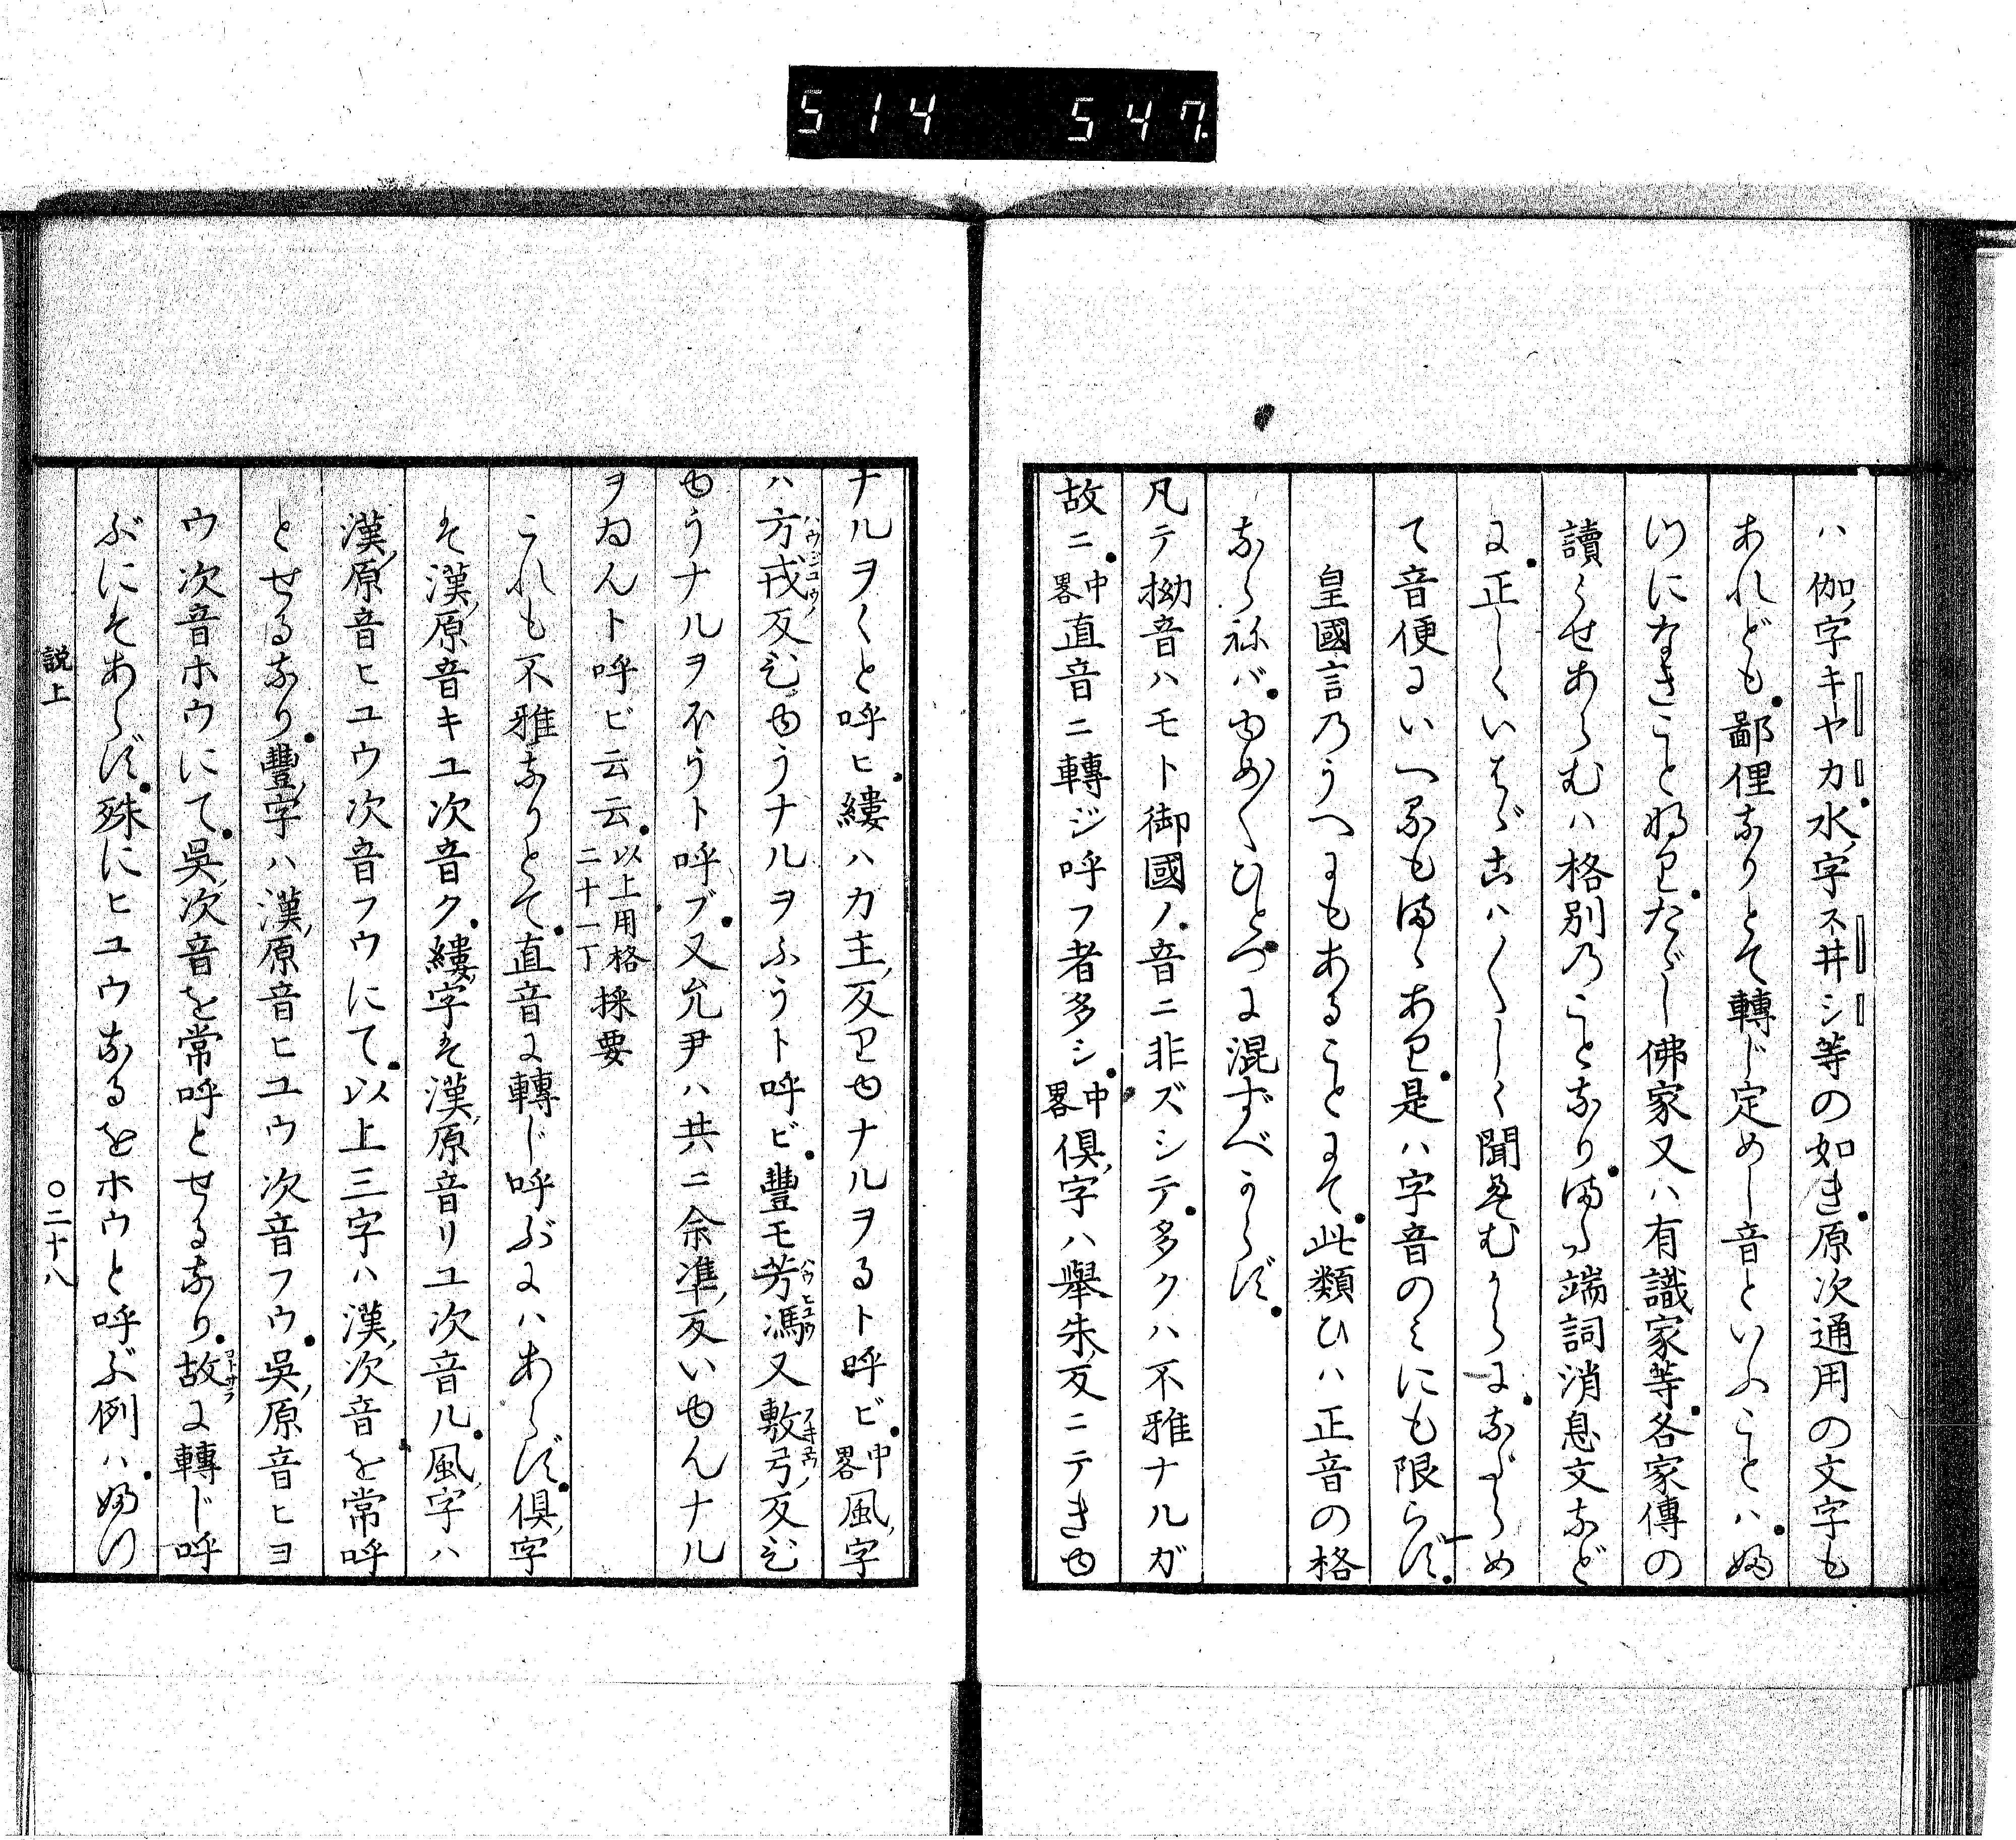 514 547
ハ伽字キヤカ水字スヰシ等の如き原次通用の文字も
あれども鄙俚なりとて轉じ定めし音といふことハ婦
つになきことゝ𛂦り。ただし佛家又ハ有識家等各家傳の
讀くせあらむハ格別乃ことなりまた端詞消息文など
に正しくいはゞ古ハくだしく聞えむからになだらめ
て音便にいへるもまゝあり是ハ字音のミにも限らず
皇國言乃うへにもあることにて此類ひハ正音の格
ならねバゆめくひとつに混ずべからず
凡テ拗音ハモト御國ノ音ニ非ズシテ多クハ不雅ナルガ
故ニ中畧直音ニ轉ジ呼フ者多シ中畧倶字ハ舉朱反ニテきゆ
ナルヲくと呼ヒ縷ハ力主反りゆナルヲるト呼ビ中畧風字
ハ方戎反ひゆうナルヲふうト呼ビ豐モ芳馮又敷弓反ひ
ゆうナルヲほうト呼ブ又允尹ハ共ニ余準反いゆんナル
ヲゐんト呼ビ云云以上用格二十一丁採要
これも不雅なりとて直音に轉じ呼ぶにハあらず倶字
そ漢原音キユ次音ク縷字そ漢原音リユ次音ル風字ハ
漢原音ヒユウ次音フウにて以上三字ハ漢次音を常呼
とせるなり豐字ハ漢原音ヒユウ次音フウ吳原音ヒヨ
ウ次音ホウにて吳次音を常呼とせるなり故に轉じ呼
ぶにそあらず殊にヒユウなるをホウと呼ぶ例ハ婦つ
説上 〇二十八